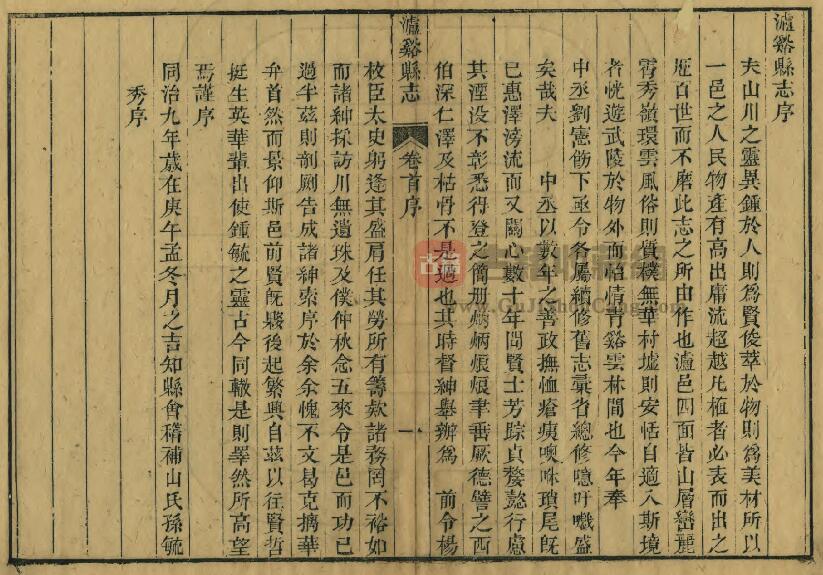 瀘谿縣志序
夫山川之靈異鍾於人則爲賢俊萃於物則爲美材所以
一邑之人民物產有高出庸流超越凡植者必表而出之
歷百世而不磨此志之所由作也瀘邑四面皆山層巒麗
霄秀嶺環雲風俗則質樸無華村墟則安恬自適入斯境
者恍遊武陵於物外而怡情青谿雲林間也今年奉
中丞劉憲飭下亟令各屬續修舊志彙省總修噫吁嚱盛
矣哉夫　中丞以數年之善政撫恤瘡痍噢咻瑣尾旣
已惠澤滂流而又關心數十年間賢士芳踪貞嫠懿行慮
其湮没不彰悉得登之簡册炳炳烺烺聿垂厥德譬之西
伯深仁澤及枯骨不是過也其時督紳舉辦爲　前令楊
瀘谿縣志　卷首序　一
枚臣太史躬逢其盛肩任其勞所有籌欵諸務罔不裕如
而諸紳採訪川無遺珠及僕仲秋念五來令是邑而功已
過半茲則剞劂告成諸紳索序於余余愧不文曷克摛華
弁首然而景仰斯邑前賢旣躱後起繁興自茲以往賢哲
挺生英華輩出使鍾毓之靈古今同轍是則睾然所高望
焉謹序
同治九年歲在庚午孟冬月之吉知縣會稽補山氏孫毓
秀序
古籍
古籍收藏網
www.GuJiShouCang.com